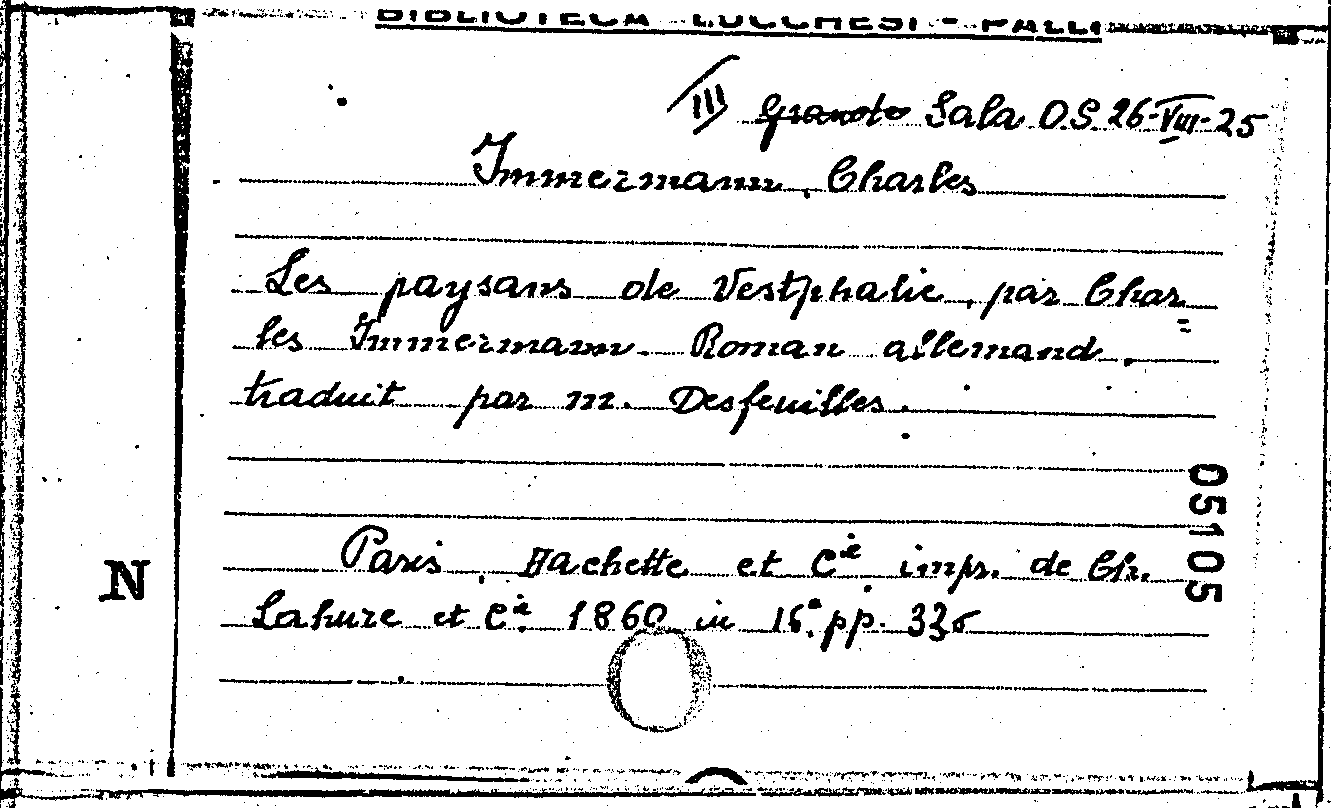 BIBLIOTECA LUCCHESI - PALLI
III Grande Sala O.S. 26-VIII-25
Immermann, Charles
Les paysans de Vestphalie, par Char=
les Immermann. Roman allemand,
traduit par m. Desfeuilles.
Paris, Hachette et Cie imp. de Ch.
Lahure et Cie. 1860 in 16° pp.
05105
N